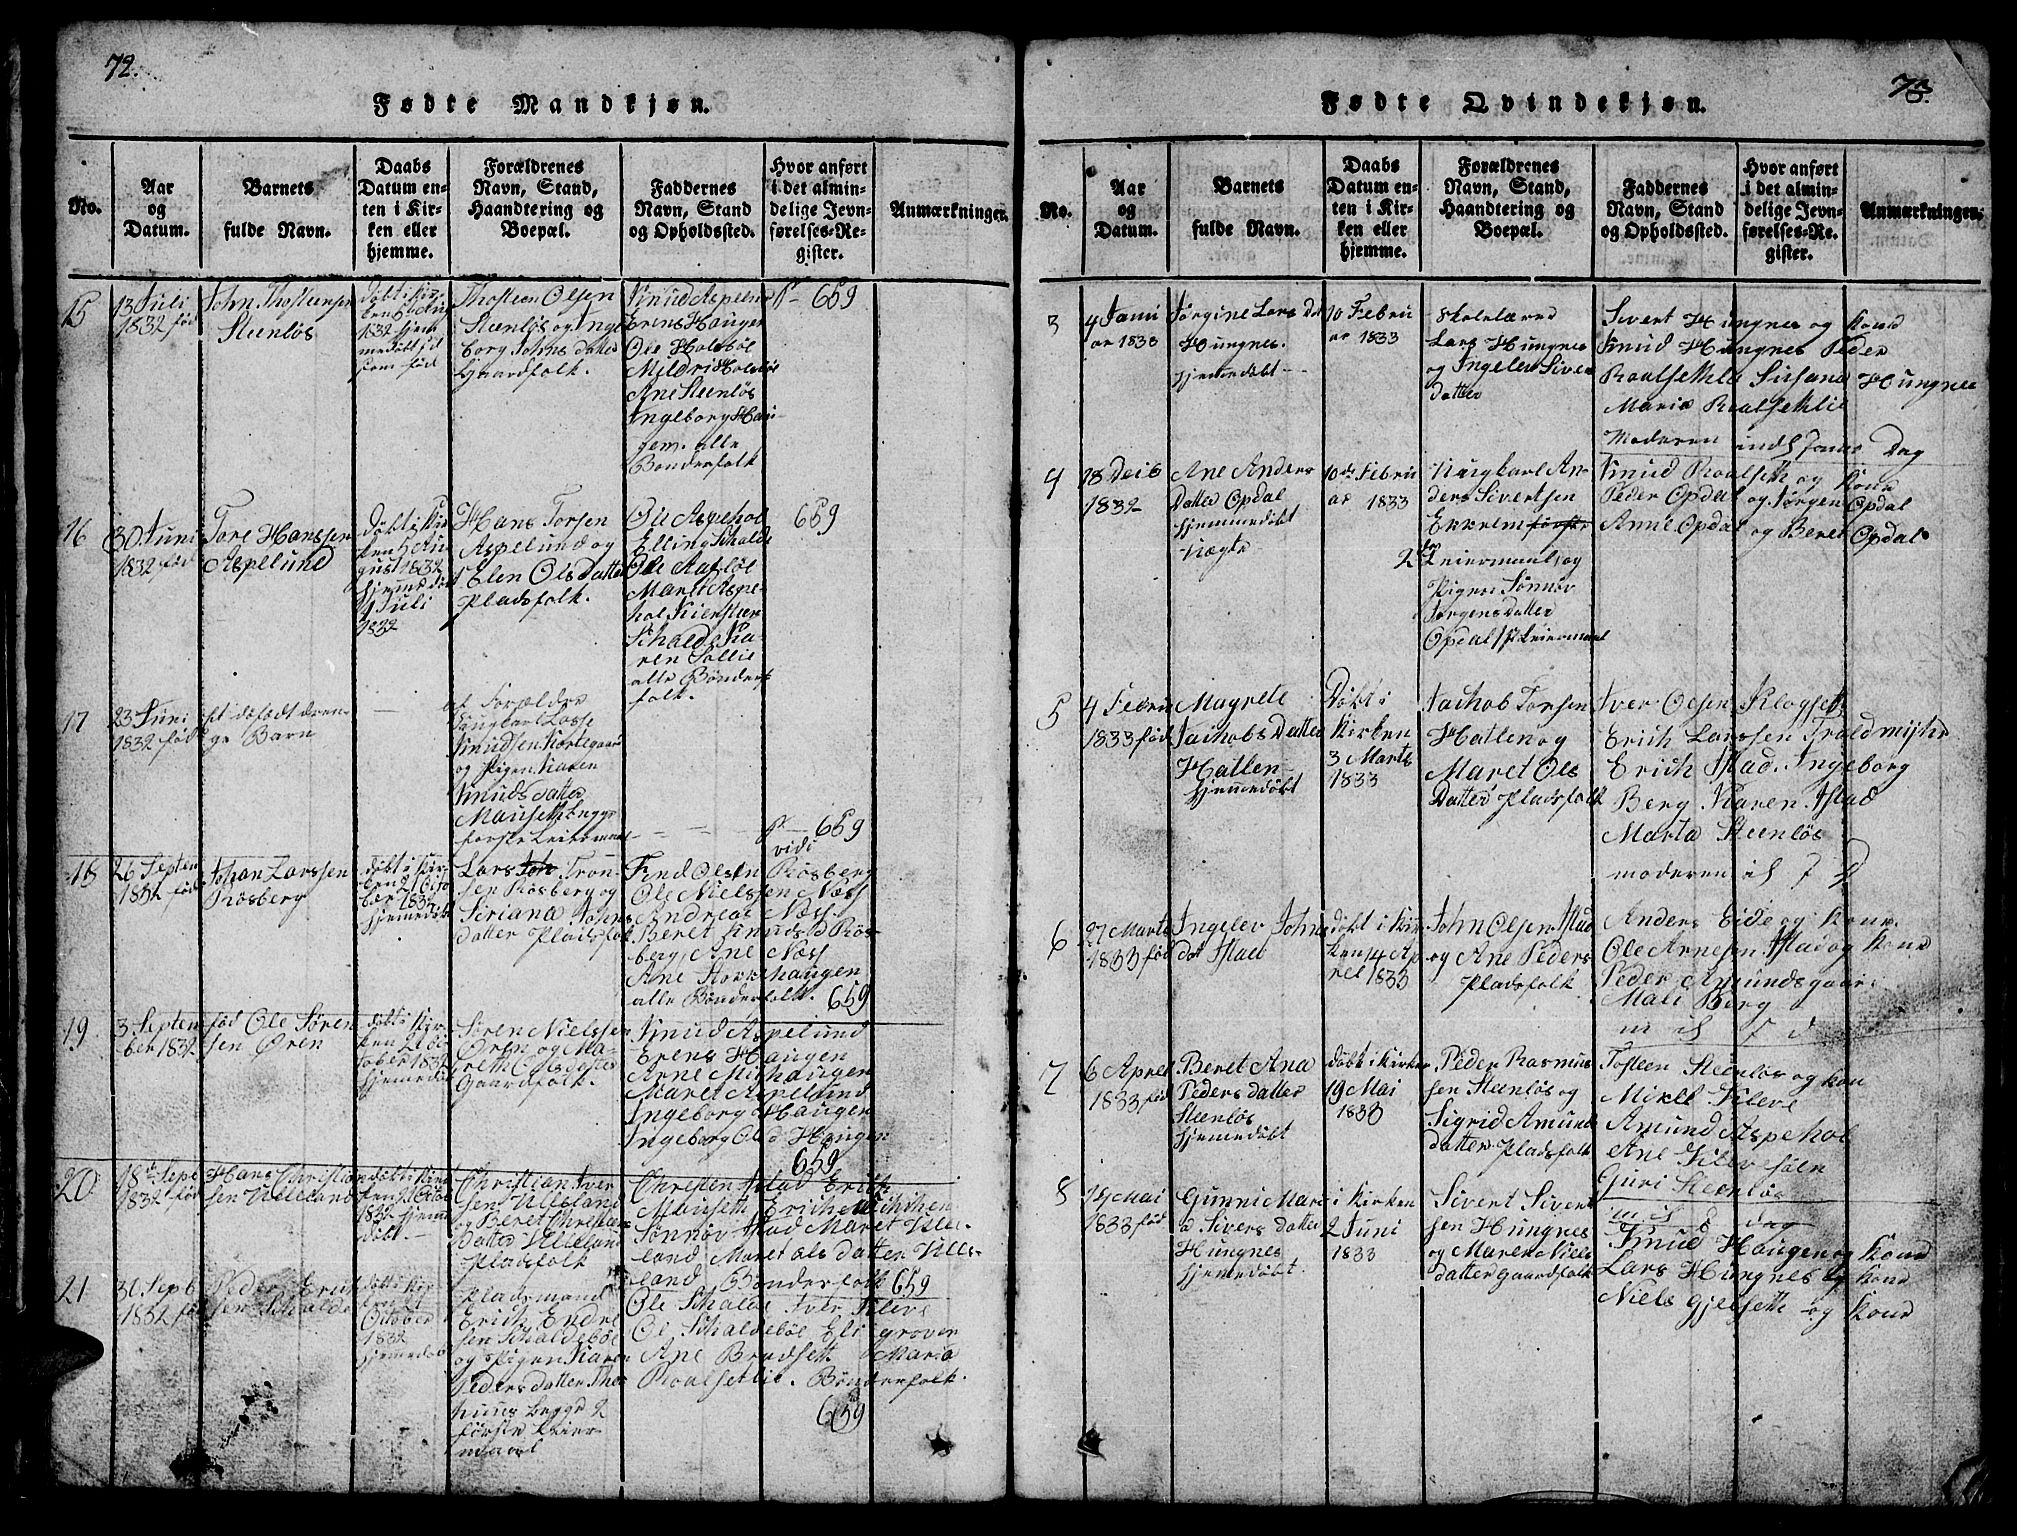 72.
Fødte Mandkjøn.
No.
Aar
og
Datum.
Barnets
fulde Navn.
Daabs
Datum en-
ten i Kir-
ken eller
hjemme.
Forældrenes
Navn, Stand,
Haandtering og
Boepæl.
Faddernes
Navn, Stand
og Opholdssted.
Hvor anført
i det almin-
delige Jevn-
førelses-Re-
gister.
Anmærkninger.
15
13 Juli
1832 fød
John Thosteensen
Steenløs
døbt i Kir-
1832 hjem
me døbt
som fød
Thosteen Olsen
Steenløs og Inge
borg Johns datter
Gaardfolk.
Knud Aspelund
Erens Haugen
Ole Holsbøl
Mildri Holsbøl
Ane Steenløs
Ingeborg Hau-
gem. alle
Bønderfolk
659
16
30 Juni
1832 fød
Tore Hanssen
Aspelund
døbt i Kir
ken 5 Au
gust 1832
hjemmedøbt
1 Juli
1832
Hans Torsen
Aspelund og
Elen Olsdatter
Pladsfolk.
Ole Aspehol
Elling Schalde
Ole Aasbøl
Maret Aspe
hol Kiersteen
Schalde Ka-
ren Sollie
alle Bønder
folk.
659
17
23 Juni
1832 fød
et dødfødt dren-
ge Barn
af Forældre
Ungkarl Lasse
Knudsen Kortgaard
og Pigen Karen
Knudsdatter
Mauseth begges
første Leiermaal
659
vidi
18
26 Septem
1832 fød
Johan Larssen
Røsberg
døbt i Kir-
ken 21 Octo
ber 1832
hjemmedøbt
Lars Tron-
sen Røsberg og
Siriana Johns
datter Pladsfolk
Find Olsen Røsberg
Ole Nielssen Næss
Andreas Næss
Beret Knuds d Røs
berg, Ane Næss
Ane Storkhaugen
alle Bønderfolk. 659
19
3 Septem
ber 1832
fød Ole Søren
sen Øren
døbt i Kir-
ken 21 Oc
tober 1832
hjemmedøbt
Søren Nielssen
Øren og Ma-
reth Olsdatter
Gaardfolk.
Knud Aspelund
Erens Haugen
Arne Mishaugen
Maret Aspelund
Ingeborg Haugen
Ingeborg Ols d Haugen
659
20
18 Sept
1832 fød
Hans Christian
sen Ulleland
døbt i Kir
ken 21 Octo
1832 hjemme
døbt.
Christian Iver
sen Ulleland
og Beret Christians
datter Ulleland
Pladsfolk
Christen Istad Erik
Mausett Erich
Sønnøv Istad Maret Ulle
land Maret Ols datter Ulle-
land Bønderfolk 659
21
30 Sept
1832 fød
Peder Erich
sen Schalde
døbt i Kir
ken 21
October
1832
hjemmedøbt
Pladsmand
Erich Endre
sen Schaldebøl
og Pigen Karen
Peders datter
begge 2
første Leier
maal
Ole Schalde Iver Kleve
Ol Schaldebøl Eli grover
Ane Brudsett Maria
Roalsetlie. Bønderfolk.
659
73.
Fødte Qvindekjøn.
No.
Aar
og
Datum.
Barnets
fulde Navn.
Daabs
Datum en-
ten i Kir-
ken eller
hjemme.
Forældrenes
Navn, Stand,
Haandtering og
Boepæl.
Faddernes
Navn, Stand
og Opholdssted.
Hvor anført
i det almin-
delige Jevn-
førelses-Re-
gister.
Anmærkninger.
3
4 Janu
ar 1833
Jørgine Lars Dat
Hungnes.
hjemmedøbt
10 Febru
ar 1833
Skolelærer
Lars Hungnes
og Ingelev Siver
datter
Sivert Hungnes og Kone
Knud Hungnes Peder
Roalsetlie Susana Hungnes
Marie Roalsetlie
Moderen indl samme Dag
4
18 Deib
1832
Ane Anders
Datter Opdal
hjemmedøbt
Uægte
10de Febru
ar 1833
Ungkarl An-
ders Sivertsen
Ekrem første
2den Leiermaal, og
Pigen Sønnøv
Jørgensdatter
Opdal 1st Leiermaal
Knud Roalseth og Kone
Peder Opdal og Jørgen Opdal
Anne Opdal og Beret Opdal
5
4 Febru
1833 fød
Magrete
Jachobs Datter
Hatlen
hjemmedøbt
Døbt i
Kirken
3 Marts
1833
Jachob Torsen
Hatlen og
Maret Ols
Datter Pladsfolk
Iver Olsen Klogsett
Erich Larssen Troldmyhr
Erich Istad. Ingeborg
Berg Karen Istad
Marta Steenløs
moderen id 7 d
6
27 Marts
1833 fød
Ingelev Johns
dat Istad
døbt i Kir
ken 14 Ap
rel 1833
John Olsen Istad
og Ane Peders
Pladsfolk
Anders Eide og Kone.
Ole Arnesen Istad og Kone
Peder Amundsgaar
Mali Berg
m id 7 d
7
6 Aprel
1833 fød
Beret Ana
Pedersdatter
Steenløs
hjemedøbt
døbt i Kirken
19 Mai
1833
Peder Rasmus
sen Steenløs og
Sigrid Amund
datter Pladsfolk
Tosten Steenløs og kon
Mikel Kleve
Amund Aspehol
Ane Klevesølen
Guri Steenløs
m id 8 dag
8
18 Mai
1833 fød
Gunni Mari
a Sivers datter
Hungnes
hjemmedøbt
i Kirken
2 Juni
1833
Sivert Sivert
sen Hungnes
og Maren Niels
datter gaardfolk
Knud Haugen og Kone
Lars Hungnes og Kone
Niels Gjelsett og Kone